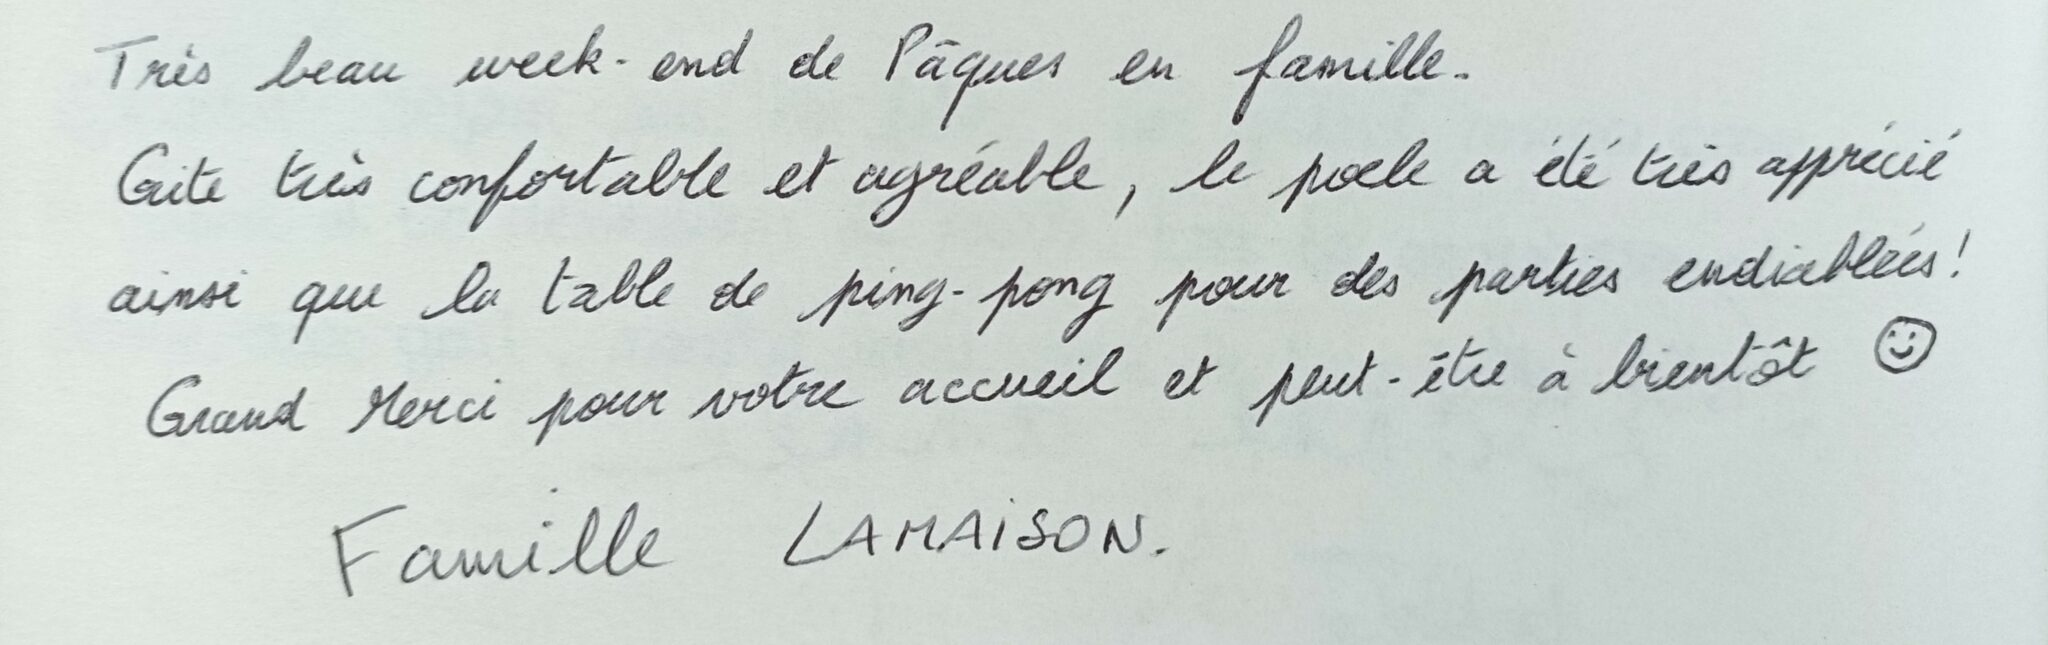 Très beau week-end de Pâques en famille.
Gite très confortable et agréable, le poele a été très apprécié
ainsi que la table de ping-pong pour des parties endiablées !
Grand Merci pour votre accueil et peut-être à bientôt ☺
Famille LAMAiSON.